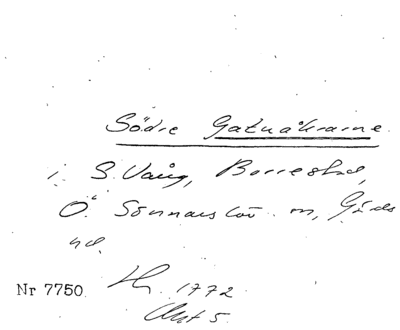 Södre Gatuåkrarne
i S. Vång, Borrestad,
Ö. Sönnarslöv m, Gärds
hd.
Nr 7750 1772
Akt 5.